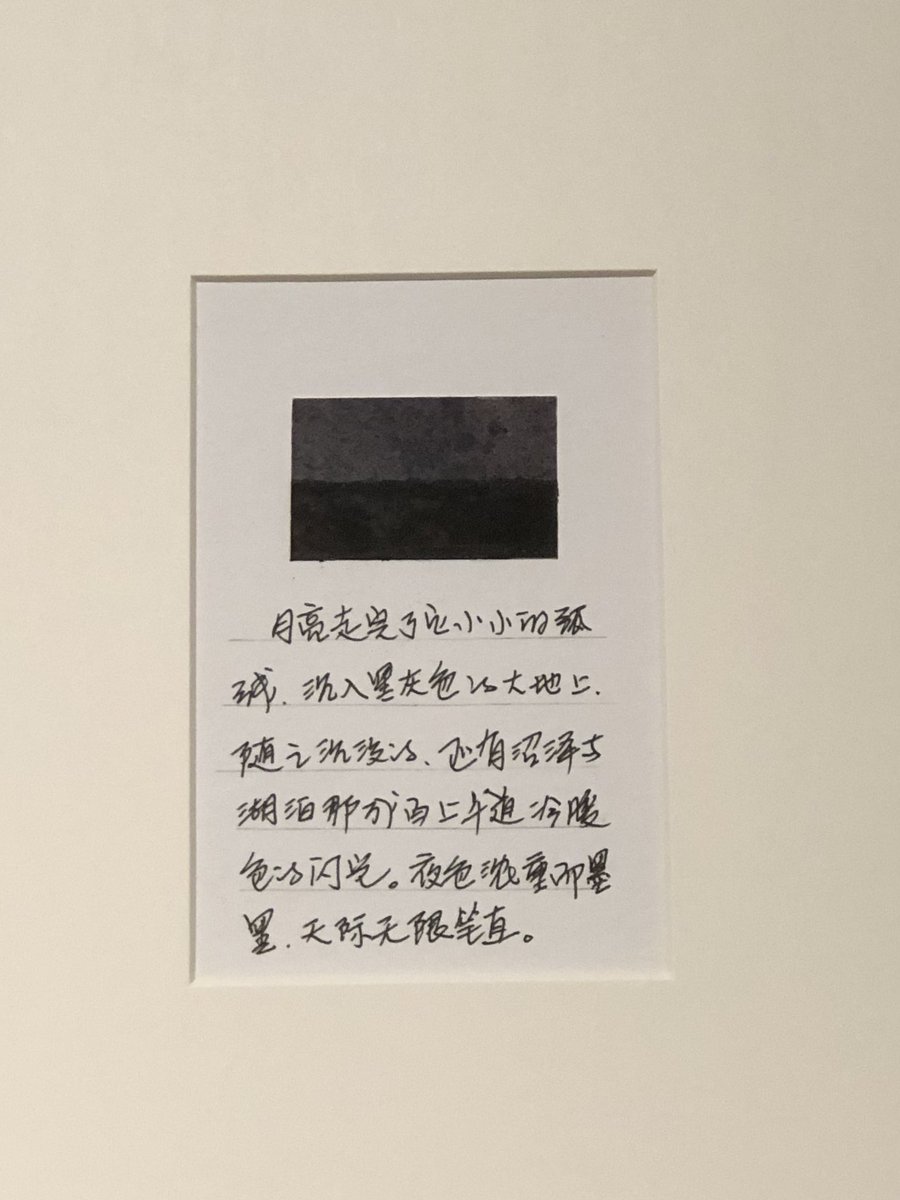 月亮走完了它小小的弧
球、沉入墨灰色的大地上、
随之沉没的、还有沼泽与
湖泊那水面上 冷暖
色的闪光。夜色浓重即墨
黑、天际无限笔直。